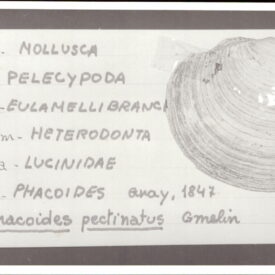 - MOLLUSCA
PELECYPODA
- EULAMELLIBRANCH
m - HETERODONTA
a - LUCINIDAE
- PHACOIDES Gray, 1847
hacoides pectinatus Gmelin